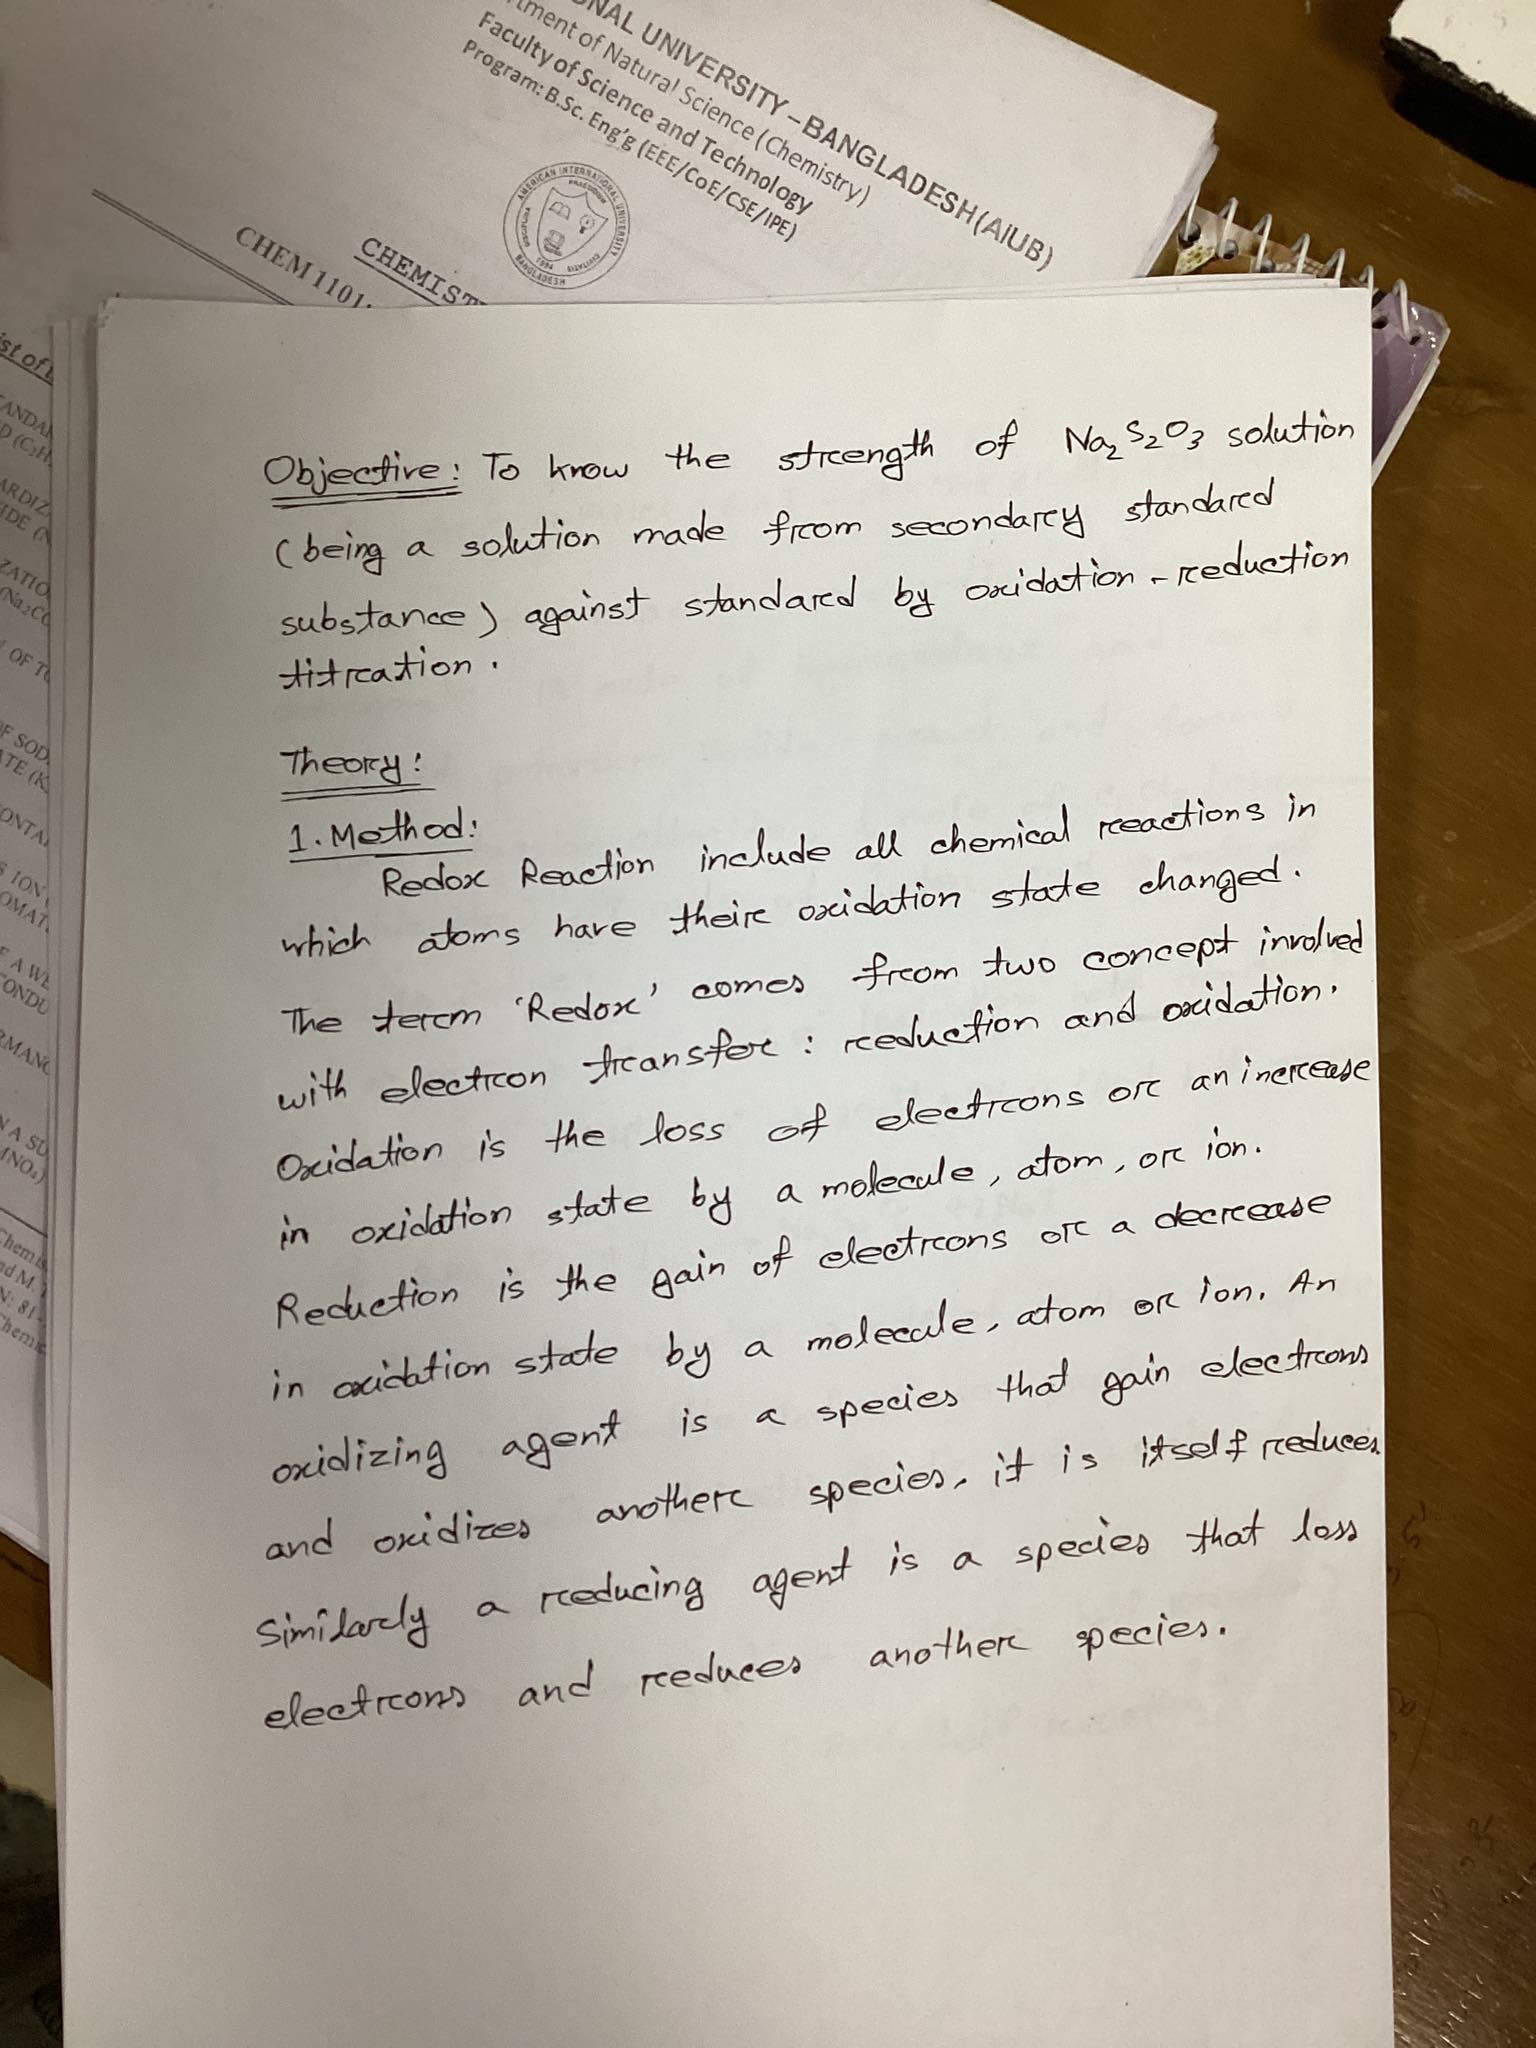 NAL UNIVERSITY – BANGLADESH (AIUB)
tment of Natural Science (Chemistry)
Faculty of Science and Technology
Program: B.Sc. Eng'g (EEE/CoE/CSE/IPE)
AMERICAN INTERNATIONAL UNIVERSITY
BANGLADESH
1994
CHEMIST
CHEM 1101
Objective: To know the strength of Na₂S₂O₃ solution
(being a solution made from secondary standard
substance) against standard by oxidation - reduction
titration.
Theory:
1. Method:
Redox Reaction include all chemical reactions in
which atoms have their oxidation state changed.
The term 'Redox' comes from two concept involved
with electron transfer : reduction and oxidation.
Oxidation is the loss of electrons or an increase
in oxidation state by a molecule, atom, or ion.
Reduction is the gain of electrons or a decrease
in oxidation state by a molecule, atom or ion. An
oxidizing agent is a species that gain electrons
and oxidizes another species, it is itself reduces.
Similarly a reducing agent is a species that loss
electrons and reduces another species.